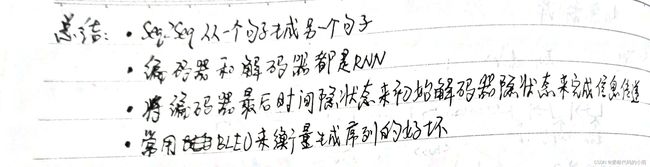 总结：· Seq2Seq 从一个句子生成另一个句子
· 编码器和解码器都是RNN
· 将编码器最后时间隐状态来初始解码器隐状态来完成信息传递
· 常用BLEU来衡量生成序列的好坏
CSDN @爱敲代码的小雨